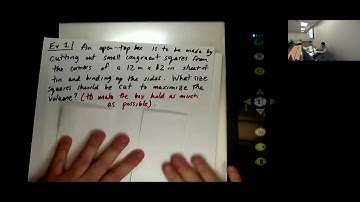 Ex 1 An open-top box is to be made by
cutting out small congruent squares from
the corners of a 12 in x 12 in sheet of
tin and binding up the sides. What size
squares should be cut to maximize the
volume? (to make the box hold as much
as possible).